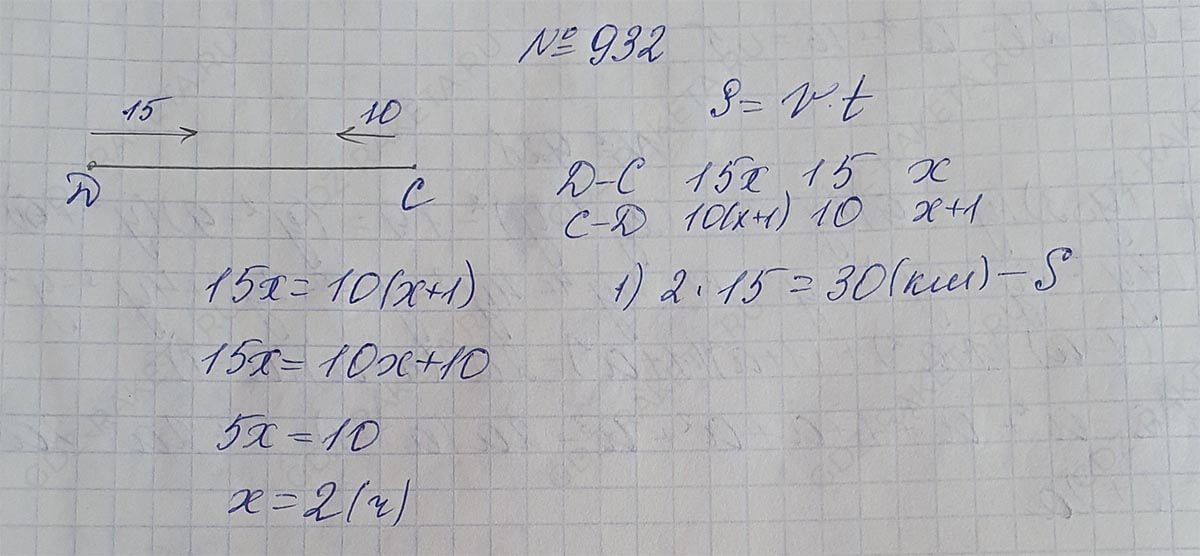 № 932
S = v · t
15 10
D C
D-C 15x 15 x
C-D 10(x+1) 10 x+1
15x = 10(x+1)
15x = 10x+10
5x = 10
x = 2 (ч)
1) 2 · 15 = 30 (км) – S